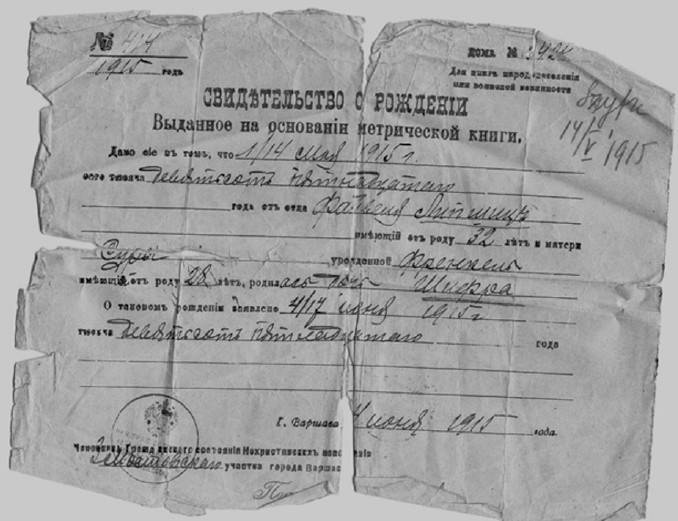 № 414
1915 годъ
Дома № 
Для книгъ народонаселенія
или воинской повинности
14/V 1915
СВИДѢТЕЛЬСТВО О РОЖДЕНІИ
Выданное на основаніи метрической книги.
Дано сіе въ томъ, что 1/14 мая 1915 г.
тысяча девятьсотъ пятнадцатаго
года отъ отца
имѣющій отъ роду 32 лѣтъ и матери
Суры урожденной Френкель
имѣющій отъ роду 28 лѣтъ, родилась дочь Шифра
О таковомъ рожденіи заявлено 4/17 іюня 1915 г
тысяча девятьсотъ пятнадцатаго года
Г. Варшава 4 іюня 1915 года.
Чиновникъ Гражданскаго состоянія Нехристіанскихъ
участка города Варшав